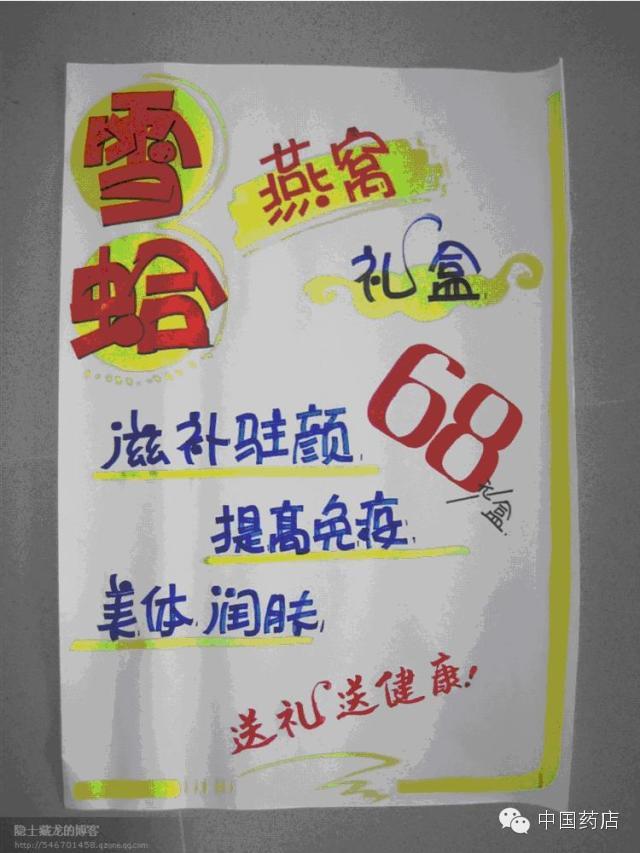 雪蛤
燕窝
礼盒
68
/礼盒
滋补驻颜
提高免疫
美体润肤
送礼送健康!
隐士藏龙的博客
http://546701458.qzone.qq.com
中国药店